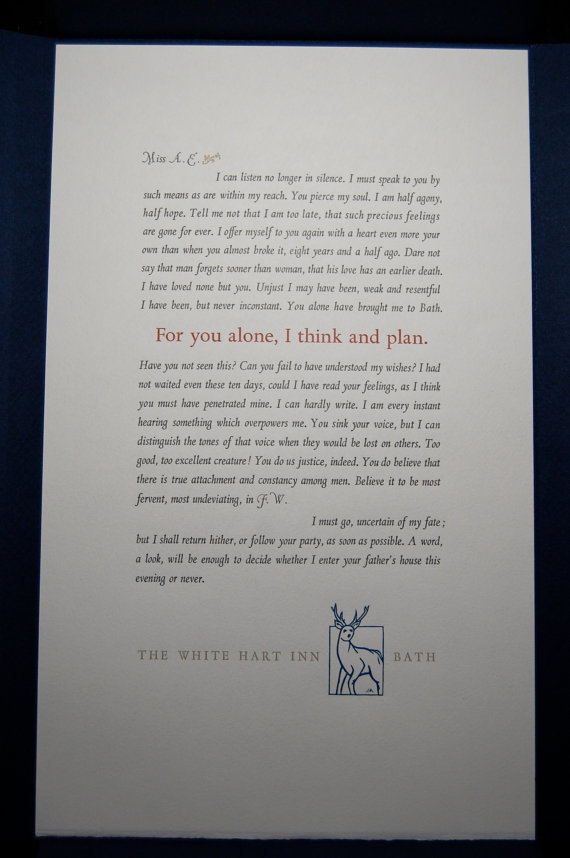 Miss A. E.
I can listen no longer in silence. I must speak to you by
such means as are within my reach. You pierce my soul. I am half agony,
half hope. Tell me not that I am too late, that such precious feelings
are gone for ever. I offer myself to you again with a heart even more your
own than when you almost broke it, eight years and a half ago. Dare not
say that man forgets sooner than woman, that his love has an earlier death.
I have loved none but you. Unjust I may have been, weak and resentful
I have been, but never inconstant. You alone have brought me to Bath.
For you alone, I think and plan.
Have you not seen this? Can you fail to have understood my wishes? I had
not waited even these ten days, could I have read your feelings, as I think
you must have penetrated mine. I can hardly write. I am every instant
hearing something which overpowers me. You sink your voice, but I can
distinguish the tones of that voice when they would be lost on others. Too
good, too excellent creature! You do us justice, indeed. You do believe that
there is true attachment and constancy among men. Believe it to be most
fervent, most undeviating, in F. W.
I must go, uncertain of my fate;
but I shall return hither, or follow your party, as soon as possible. A word,
a look, will be enough to decide whether I enter your father's house this
evening or never.
THE WHITE HART INN BATH